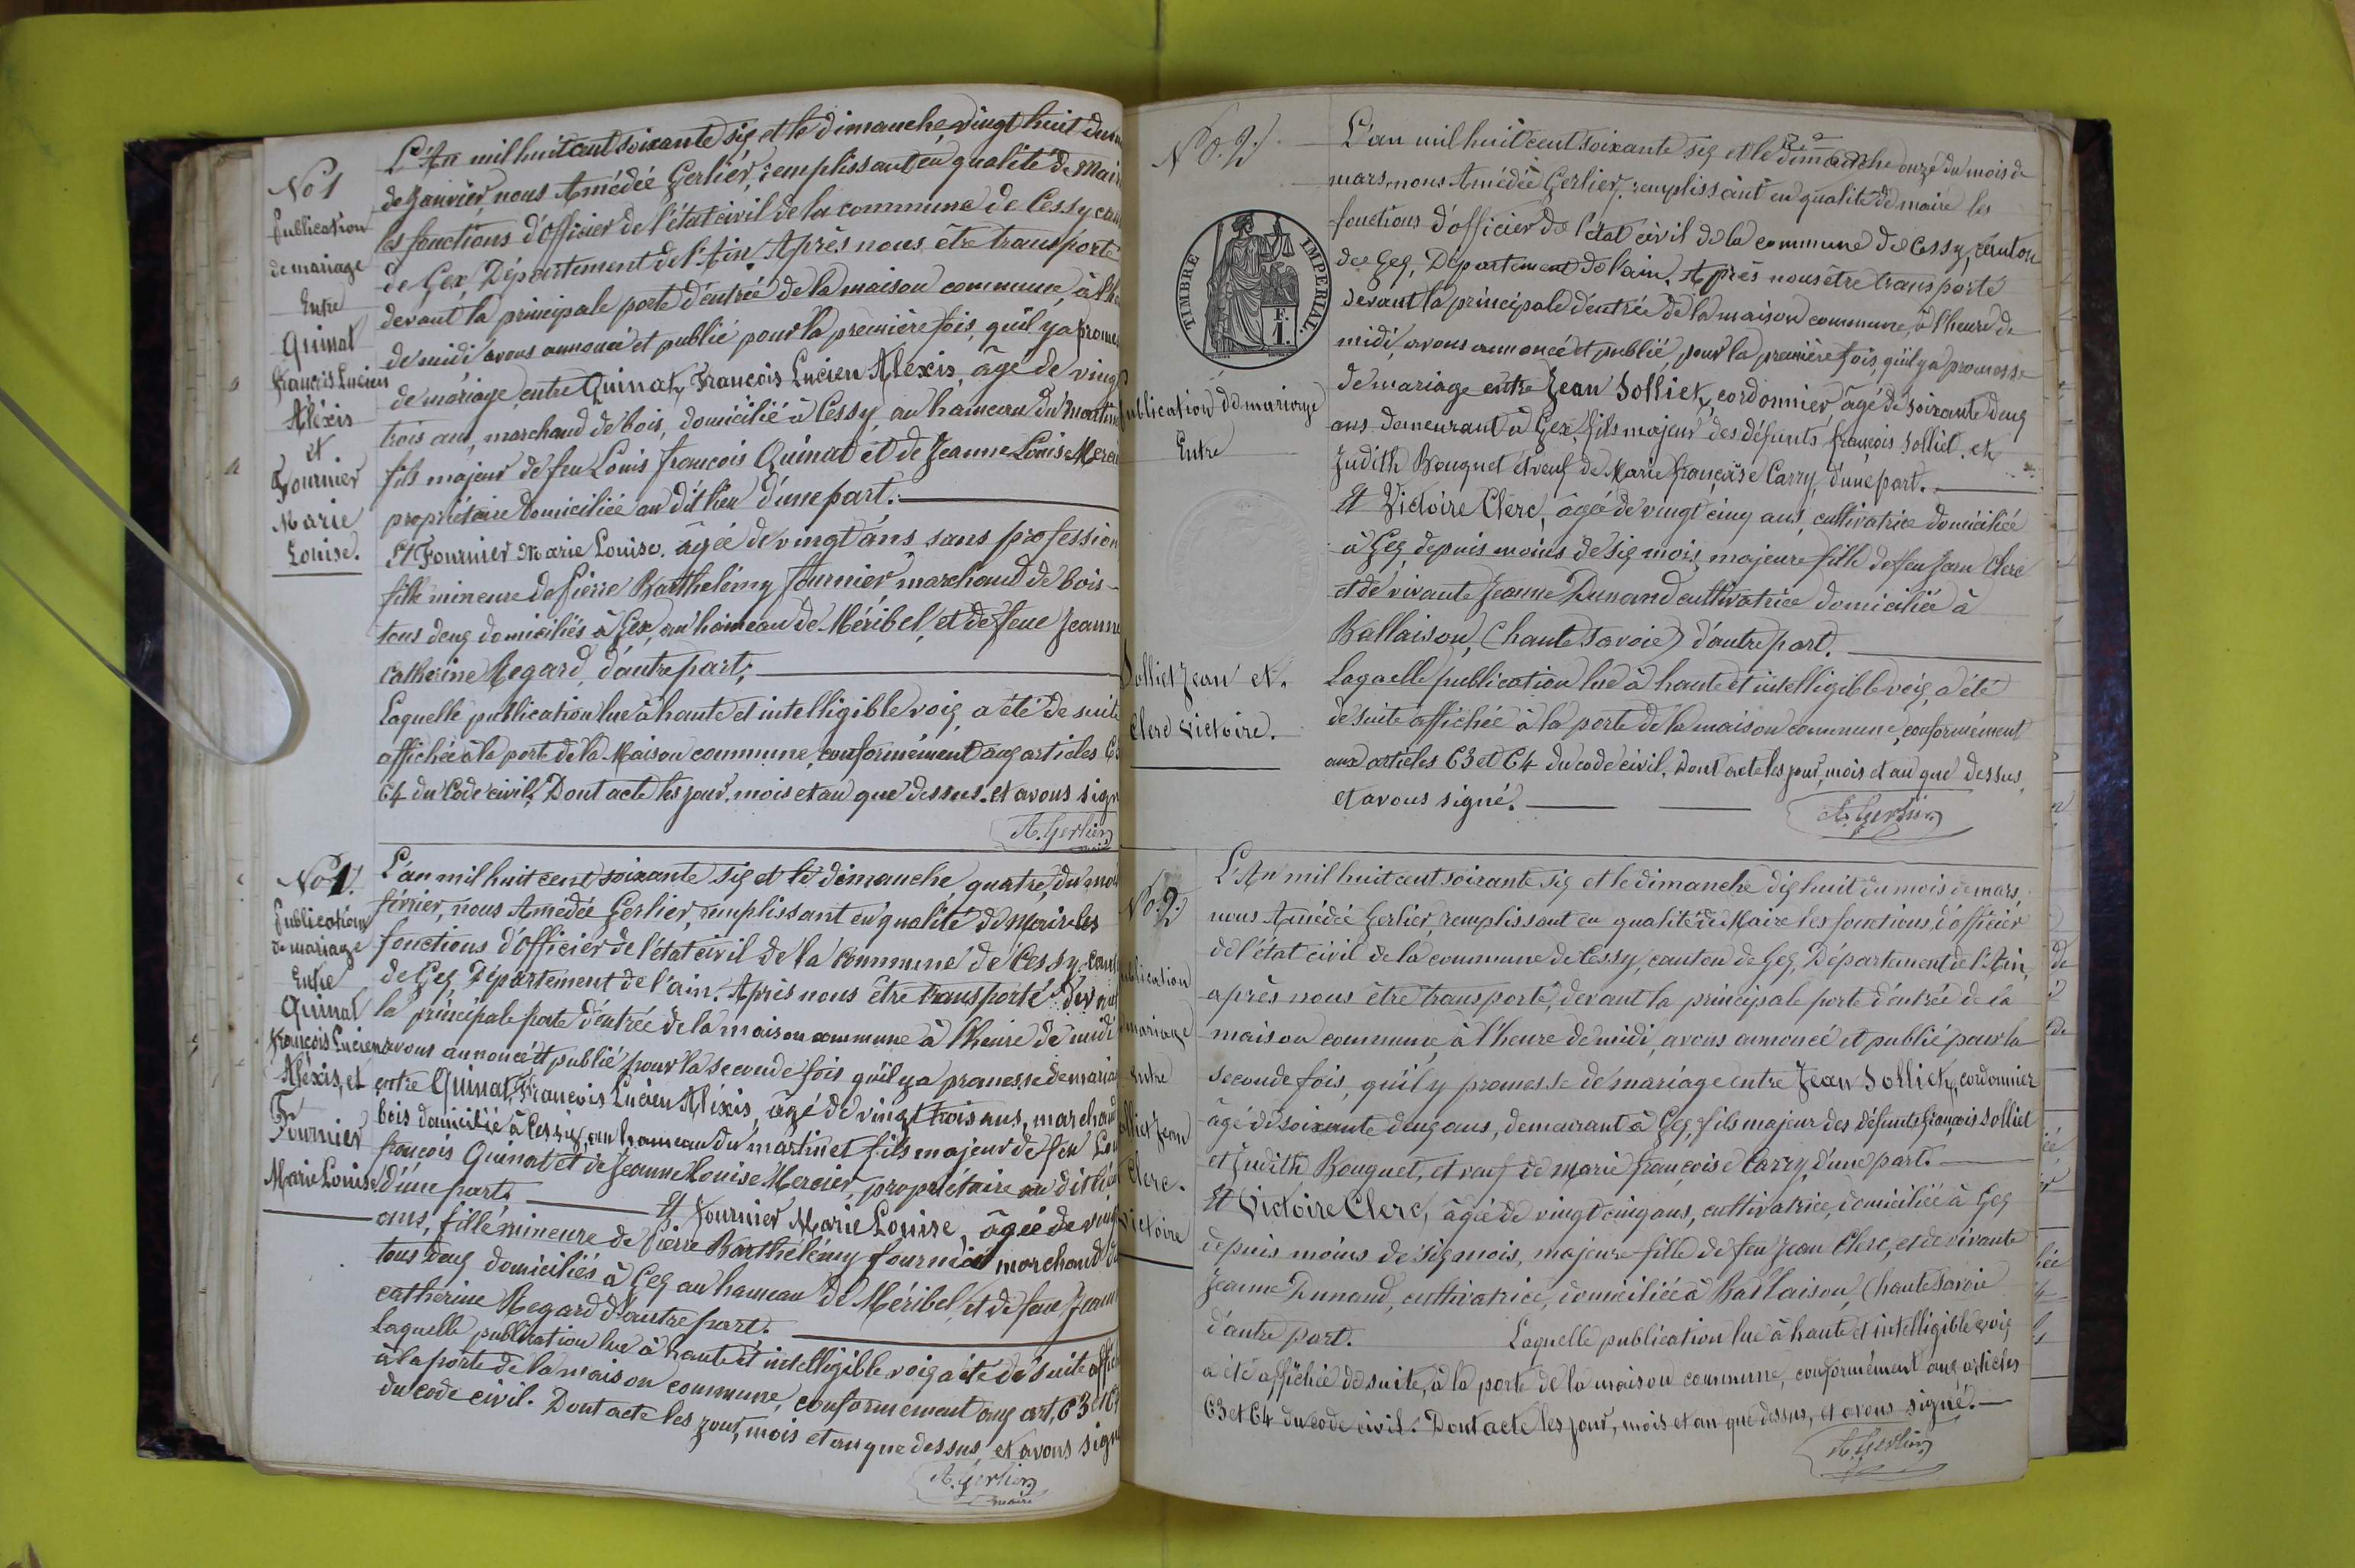 No 1
Publication
de mariage
Entre
Quinat
François Lucien
Aléxis
et
Fournier
Marie
Louise.
L'An mil huit cent soixante six et le dimanche, vingt huit du
de Janvier, nous Amédée Gerlier, remplissant en qualité de Mair
les fonctions d'Officier de l'état civil de la commune de Cessy can
de Gex, Département de l'Ain. Après nous être transporté
devant la principale porte d'entrée de la maison commune, à l'h
de midi avons annoncé et publié pour la première fois, qu'il y a prome
de mariage, entre Quinat, François Lucien Aléxis, âgé de vingt
trois ans, marchand de bois, domicilié à Cessy, au hameau du Martin
fils majeur de feu Louis françois Quinat et de Jeanne Louise Merci
propriétaire domiciliée au dit lieu d'une part.
Et Fournier Marie Louise. âgée de vingt ans sans profession
fille mineure de Pierre Barthelémy fournier marchand de bois
tous deux domiciliés à Gex, au hameau de Méribel, et de feue Jeanne
Catherine Regard, d'autre part;
Laquelle publication lue à haute et intelligible voix, a été de suite
affichée à la porte de la Maison commune, conformément aux articles 63
64 du Code civil, Dont acte les jour, mois et an que dessus. et avons sign
A. Gerlier
maire
No 1.
Publication
de mariage
Entre
Quinat
François Lucien
Aléxis, et
Fournier
Marie Louise.
L'an mil huit cent soixante six et le dimanche quatre, du moi
février, nous Amédée Gerlier, remplissant en qualité de Maire les
fonctions d'Officier de l'état civil de la commune de Cessy, cant
de Gex, Département de l'ain. Après nous être transporté devant
la principale porte d'entrée de la maison commune à l'heure de midi
avons annoncé et publié pour la seconde fois qu'il y a promesse de maria
entre Quinat, François Lucien Aléxis, âgé de vingt trois ans, marchand
bois domicilié à Cessy, au hameau du martinet fils majeur de feu Lou
françois Quinat et de Jeanne Louise Mercier, propriétaire au dit lieu
d'une part, Et Fournier Marie Louise, âgée de vingt
ans, fille mineure de Pierre Barthélémy fournier marchand de
tous deux domiciliés à Gex au hameau de Méribel, et de feue Jeann
catherine Regard d'autre part.
Laquelle publication lue à haute et intelligible voix a été de suite affich
à la porte de la maison commune, conformément aux art, 63 et 64
du code civil. Dont acte les jour, mois et an que dessus, et avons sign
A. Gerlier
maire
No. 2.
TIMBRE IMPERIAL.
1F.
Publication de mariage
Entre
Solliet Jean et.
Clerc Victoire.
L'an mil huit cent soixante six et le dimanche onze du mois de
mars, nous Amédée Gerlier, remplissant en qualité de maire les
fonctions d'officier de l'état civil de la commune de Cessy, canton
de Gex, Département de l'ain. Après nous être transporté
devant la principale d'entrée de la maison commune, à l'heure de
midi, avons annoncé et publié, pour la première fois, qu'il y a promesse
de mariage entre Jean Solliet, cordonnier, âgé de soixante deux
ans demeurant à Gex, fils majeur des défunts françois Solliet. et
Judith Bouquet et veuf de Marie françoise Carry, d'une part.
Et Victoire Clerc, âgée de vingt cinq ans, cultivatrice domiciliée
à Gex, depuis moins de six mois, majeure fille de feu Jean Clerc
et de vivante Jeanne Dunand cultivatrice domiciliée à
Ballaison, (haute Savoie) d'autre part.
Laquelle publication lue à haute et intelligible voix, a été
de suite affichée à la porte de la maison commune, conformément
aux articles 63 et 64 du code civil. Dont acte les jour, mois et an que dessus,
et avons signé.
A. Gerlier
No. 2.
ublication
mariage
Entre
olliet Jean
Clerc.
Victoire
L'An mil huit cent soixante six et le dimanche dix huit du mois de mars,
nous Amédée Gerlier, remplissant en qualité de Maire les fonctions d'officier
de l'état civil de la commune de Cessy, canton de Gex, Département de l'Ain,
après nous être transporté, devant la principale porte d'entrée de la
maison commune, à l'heure de midi, avons annoncé et publié pour la
seconde fois, qu'il y promesse de mariage entre Jean Solliet, cordonnier
âgé de soixante deux ans, demeurant à Gex, fils majeur des défunts françois Solliet
et Judith Bouquet, et veuf de Marie françoise Carry, d'une part.
Et Victoire Clerc, âgée de vingt cinq ans, cultivatrice, domiciliée à Gex
depuis moins de six mois, majeure fille de feu Jean Clerc, et de vivante
Jeanne Dunand, cultivatrice, domiciliée à Ballaison, (haute Savoie
d'autre part. Laquelle publication lue à haute et intelligible voix,
a été affichée de suite, à la porte de la maison commune, conformément aux articles
63 et 64 du code civil. Dont acte les jour, mois et an que dessus, et avons signé.
A. Gerlier